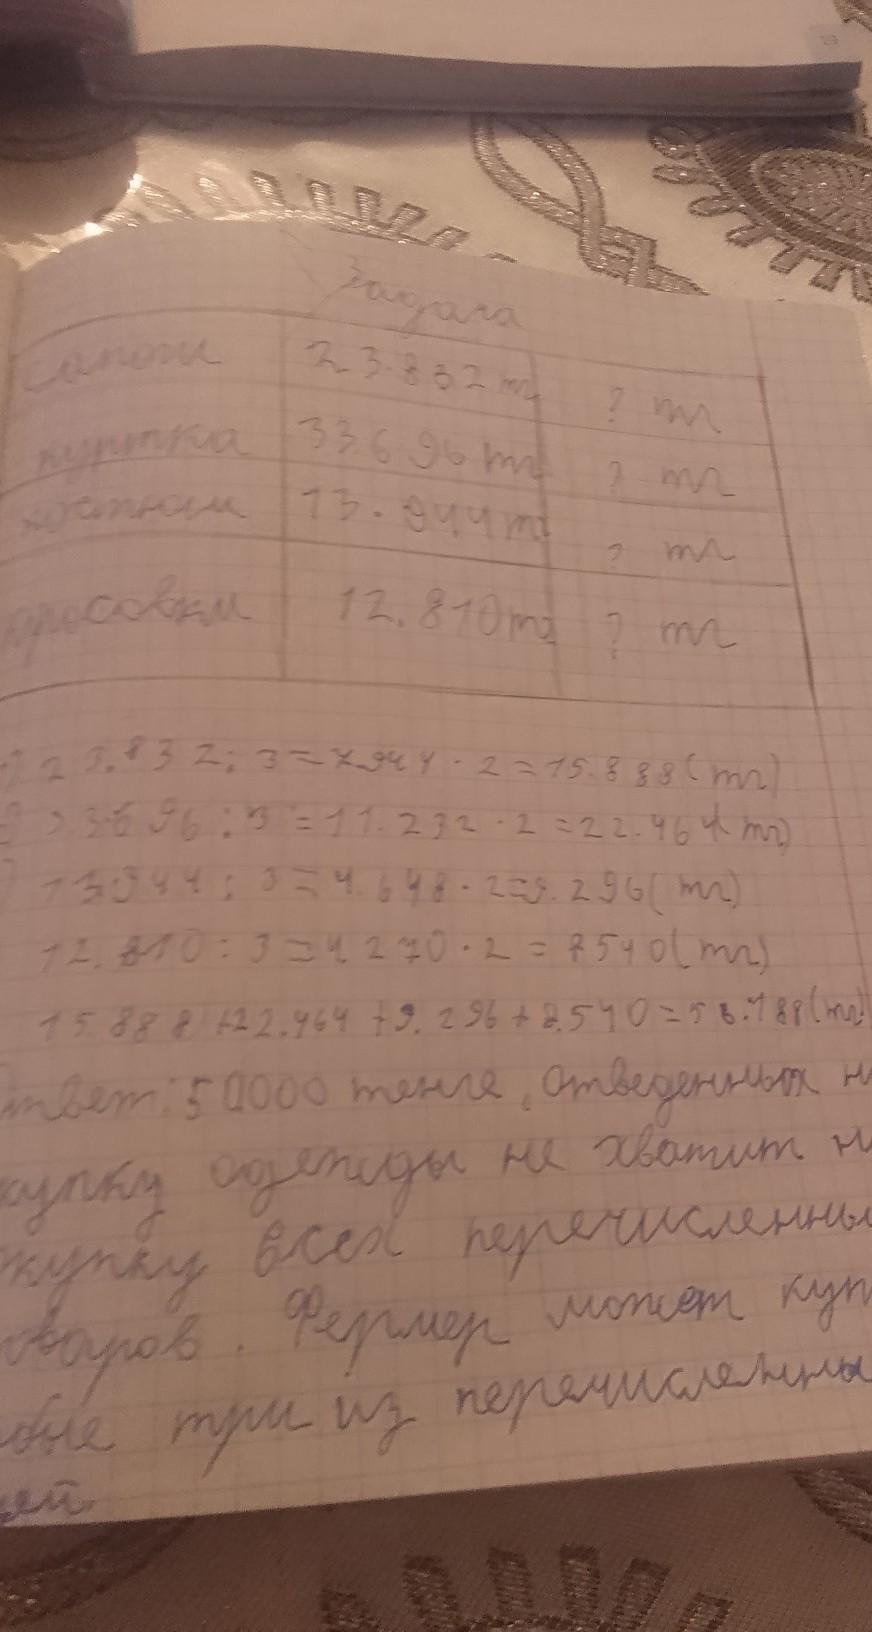 Задача
сапоги 23.832 тг ? тг
куртка 33696 тг ? тг
костюм 13.944 тг ? тг
кросовки 12.810 тг ? тг
1) 23.832 : 3 = 7944 · 2 = 15.888 (тг)
33696 : 3 = 11.232 · 2 = 22.464 (тг)
13944 : 3 = 4.648 · 2 = 9.296 (тг)
12.810 : 3 = 4270 · 2 = 8540 (тг)
15.888 + 22.464 + 9.296 + 8.540 = 56.188 (тг)
твет: 50000 тенге, отведенных н
купку одежды не хватит н
купку всех перечисленны
оваров. Фермер может куп
бые три из перечисленны
ей